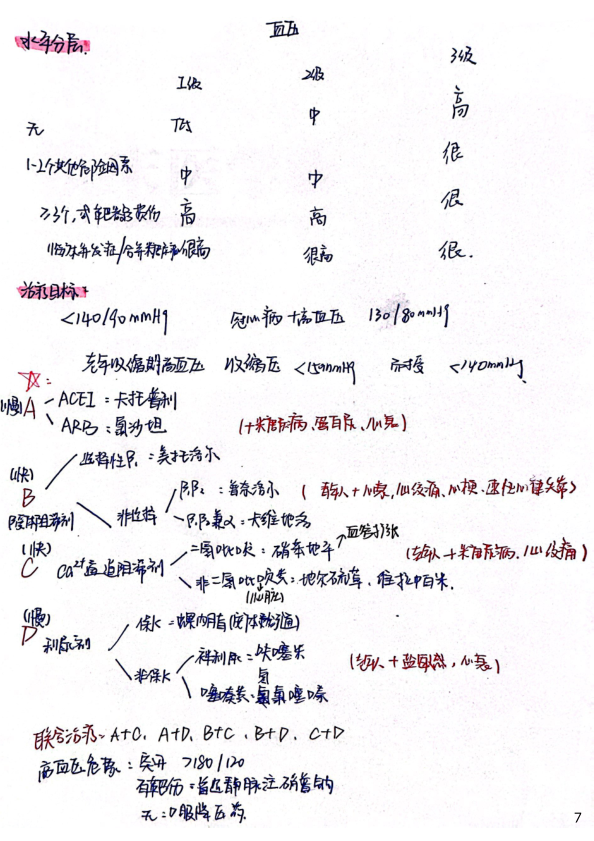 血压
水平分层
1级 2级 3级
无 低 中 高
1-2个其他危险因素 中 中 很
≥3个,或靶器损伤 高 高 很
临床并发症/合并糖尿病 很高 很高 很.
治疗目标:
<140/90mmHg 冠心病+高血压 130/80mmHg
老年收缩期高血压 收缩压 <150mmHg 耐受 <140mmHg
☆:
(慢) A ACEI:卡托普利
ARB:氯沙坦 (+糖尿病、蛋白尿、心衰)
(快) B 选择性β₁:美托洛尔
β受体阻滞剂 非选择 β₁β₂:普萘洛尔
β₁β₂兼α:卡维地洛
(快) C Ca²⁺通道阻滞剂 二氢吡啶:硝苯地平 血管扩张 (老年人+糖尿病、心绞痛)
非二氢吡啶类:地尔硫䓬、维拉帕米.
(心脏)
(慢) D 利尿剂 保K:螺内酯
非保K 袢利尿:呋塞米 (老人+盐敏感,心衰)
噻嗪类:氢氯噻嗪
联合治疗:A+C、A+D、B+C、B+D、C+D
高血压危象: >180/120
有靶伤:首选静脉注硝普钠
无:口服降压药.
7